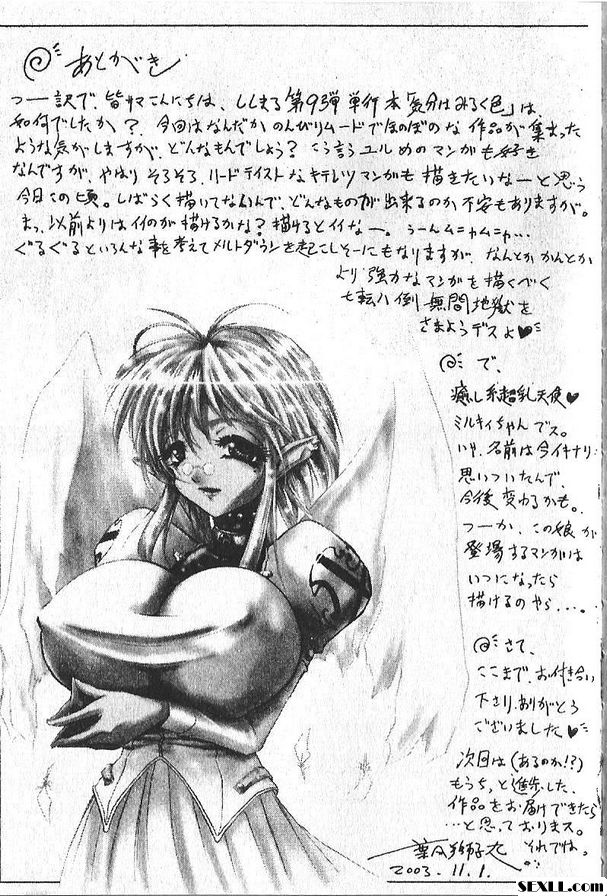 あとがき
つー訳で、皆サマこんにちは、ししまる第9弾単行本「気分はみるく色」は
如何でしたか?今回はなんだかのんびりムードでほのぼのな作品が集まった
ような気がしますが、どんなもんでしょう?こう言うユルめのマンガも好き
なんですが、やはりそろそろ、ハードテイストなキテレツマンガも描きたいなーと思う
今日この頃。しばらく描いてないんで、どんなものが出来るのか不安もありますが。
まっ、以前よりはイイのが描けるかな?描けるとイイなー。うーんムニャムニャ…
ぐるぐるといろんな事を考えてメルトダウンを起こしそーにもなりますが、なんとかかんとか
より強力なマンガを描くべく
七転八倒無間地獄を
さまようデスよ♥
で、
癒し系超乳天使♥
ミルキィちゃんでス。
いや、名前は今イキナリ
思いついたんで、
今後変わるかも。
つーか、この娘が
登場するマンガは
いつになったら
描けるのやら…。
さて、
ここまで、お付き合い
下さり、ありがとう
ございました♥
次回は(あるのか!?)
もうちっと進歩した、
作品をお届けできたら
…と思っておりまス。
それでは。
2003.11.1.
SEXLL.com